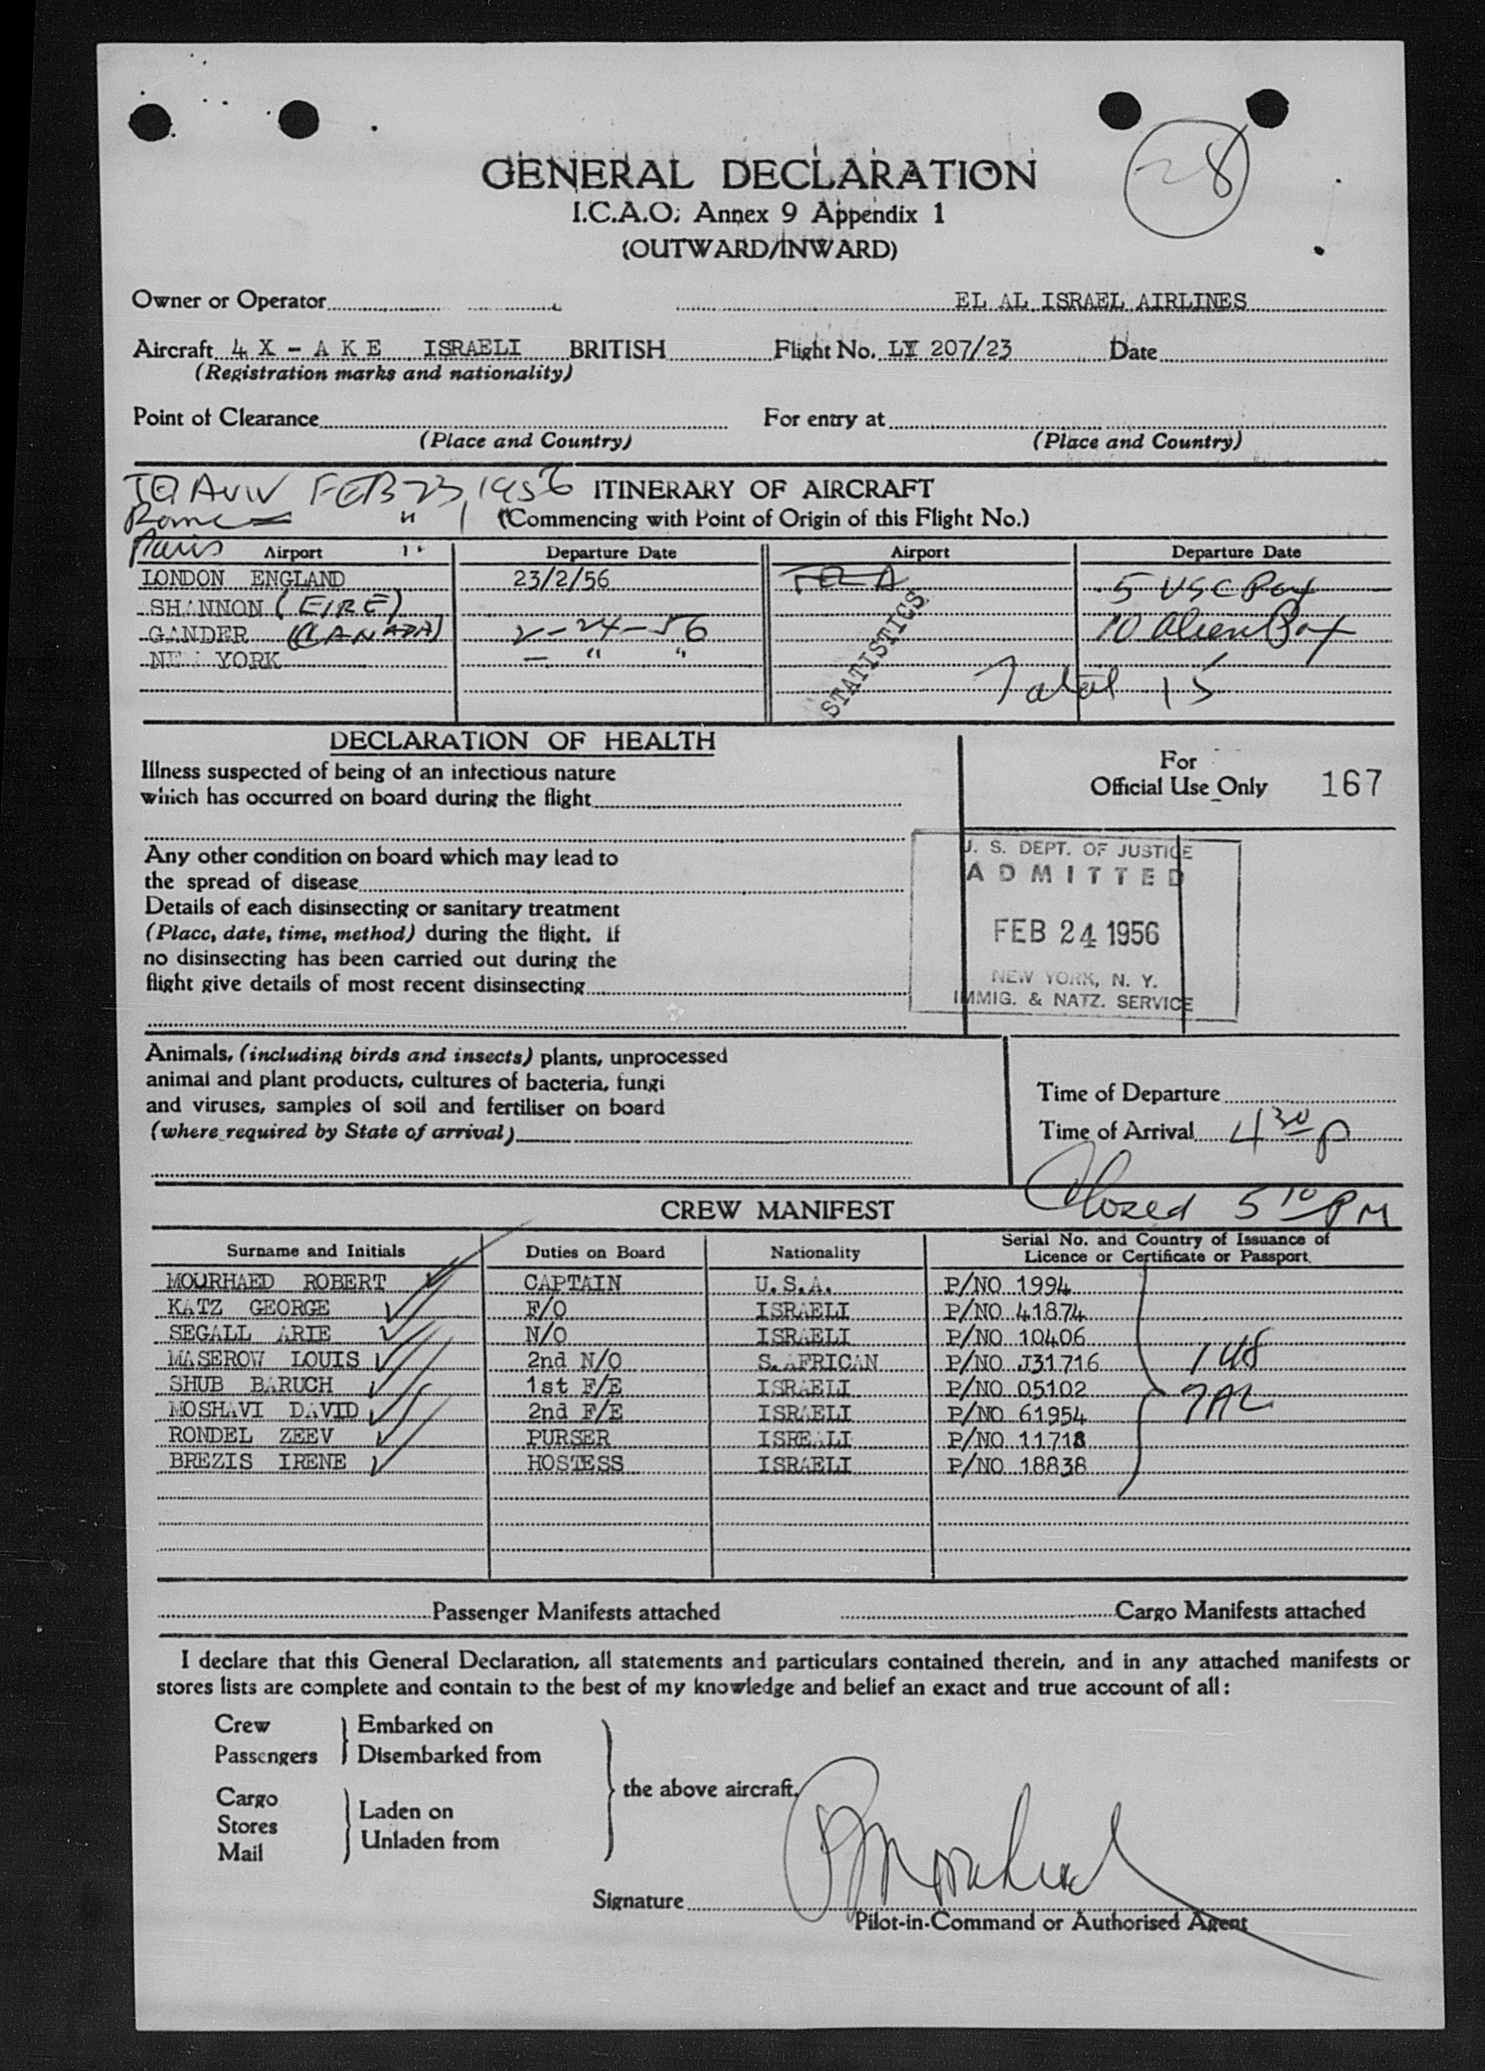 28
GENERAL DECLARATION
I.C.A.O. Annex 9 Appendix 1
(OUTWARD/INWARD)
Owner or Operator EL AL ISRAEL AIRLINES
Aircraft 4 X - A K E ISRAELI BRITISH Flight No. LY 207/23 Date
(Registration marks and nationality)
Point of Clearance For entry at
(Place and Country) (Place and Country)
Tel Aviv FEB 23, 1956 ITINERARY OF AIRCRAFT
Rome " (Commencing with Point of Origin of this Flight No.)
Paris "
Airport Departure Date Airport Departure Date
LONDON ENGLAND 23/2/56 5 USC Pax
SHANNON (EIRE)
GANDER (CANADA) 2-24-56 10 Alien Pax
NEW YORK - " "
Total 15
STATISTICS
DECLARATION OF HEALTH
Illness suspected of being of an infectious nature
which has occurred on board during the flight
For
Official Use Only 167
Any other condition on board which may lead to
the spread of disease
Details of each disinsecting or sanitary treatment
(Place, date, time, method) during the flight. If
no disinsecting has been carried out during the
flight give details of most recent disinsecting
U. S. DEPT. OF JUSTICE
ADMITTED
FEB 24 1956
NEW YORK, N. Y.
IMMIG. & NATZ. SERVICE
Animals, (including birds and insects) plants, unprocessed
animal and plant products, cultures of bacteria, fungi
and viruses, samples of soil and fertiliser on board
(where required by State of arrival)
Time of Departure
Time of Arrival 4 30 p
Closed 5 10 PM
CREW MANIFEST
Surname and Initials Duties on Board Nationality Serial No. and Country of Issuance of
Licence or Certificate or Passport.
MOURHAED ROBERT CAPTAIN U.S.A. P/NO 1994
KATZ GEORGE F/O ISRAELI P/NO 41874
SEGALL ARIE N/O ISRAELI P/NO 10406
MASEROW LOUIS 2nd N/O S.AFRICAN P/NO J31716 148
SHUB BARUCH 1st F/E ISRAELI P/NO 05102
MOSHAVI DAVID 2nd F/E ISRAELI P/NO 61954
RONDEL ZEEV PURSER ISREALI P/NO 11718
BREZIS IRENE HOSTESS ISRAELI P/NO 18838
Passenger Manifests attached Cargo Manifests attached
I declare that this General Declaration, all statements and particulars contained therein, and in any attached manifests or
stores lists are complete and contain to the best of my knowledge and belief an exact and true account of all:
Crew Embarked on
Passengers Disembarked from
the above aircraft.
Cargo Laden on
Stores Unladen from
Mail
Signature
Pilot-in-Command or Authorised Agent